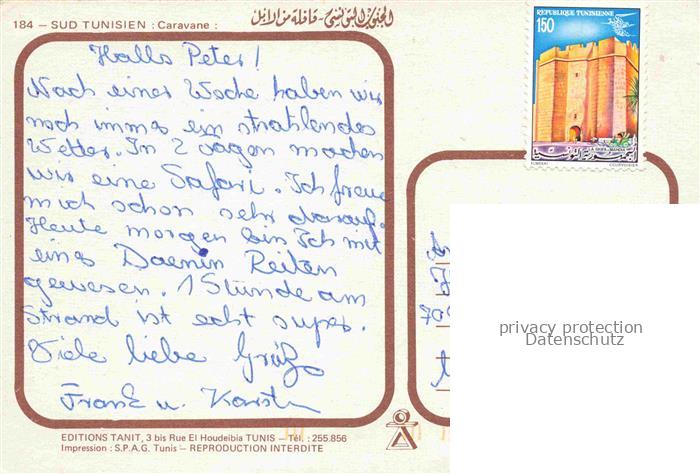 184 – SUD TUNISIEN : Caravane :
الجنوب التونسي - قافلة من الإبل
REPUBLIQUE TUNISIENNE
150
Hallo Peter!
Nach einer Woche haben wir
noch immer ein strahlendes
Wetter. In 2 Tagen machen
wir eine Safari. Ich freue
mich schon sehr darauf.
Heute morgen bin Ich mit
einer Daenin Reiten
gewesen. 1 Stunde am
Strand ist echt super.
Viele liebe Grüße
Frank u. Karsten
privacy protection
Datenschutz
EDITIONS TANIT, 3 bis Rue El Houdeibia TUNIS – Tél. : 255.856
Impression : S.P.A.G. Tunis – REPRODUCTION INTERDITE